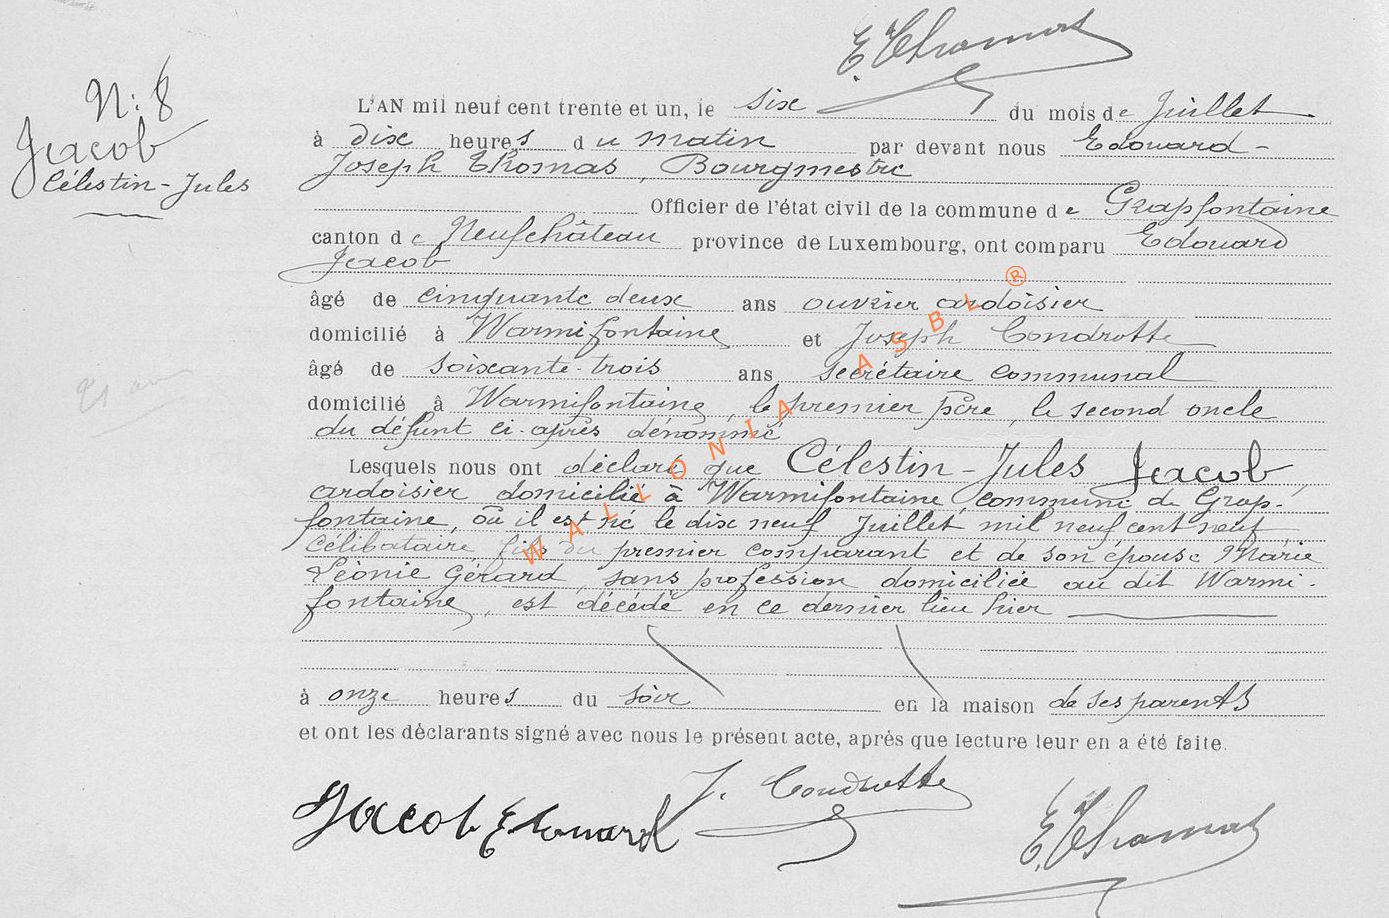 E. Thomas
N: 8
Jacob
Célestin-Jules
L'AN mil neuf cent trente et un, le six du mois de Juillet
à dix heures du matin par devant nous Edouard-
Joseph Thomas, Bourgmestre
Officier de l'état civil de la commune de Grapfontaine
canton de Neufchâteau province de Luxembourg, ont comparu Edouard
Jacob
âgé de cinquante deux ans ouvrier ardoisier
domicilié à Warmifontaine et Joseph Condrotte
âgé de soixante-trois ans secrétaire communal
domicilié à Warmifontaine, le premier père, le second oncle
du défunt ci-après dénommé
Lesquels nous ont déclaré que Célestin-Jules Jacob,
ardoisier domicilié à Warmifontaine, commune de Grap-
fontaine, où il est né le dix neuf Juillet mil neuf cent neuf
célibataire fils du premier comparant et de son épouse Marie
Léonie Gérard, sans profession domiciliée au dit Warmi-
fontaine, est décédé en ce dernier lieu hier
à onze heures du soir en la maison de ses parents
et ont les déclarants signé avec nous le présent acte, après que lecture leur en a été faite.
Jacob Edouard J. Condrotte E. Thomas
21 ans
WALLONIA ASBL ®